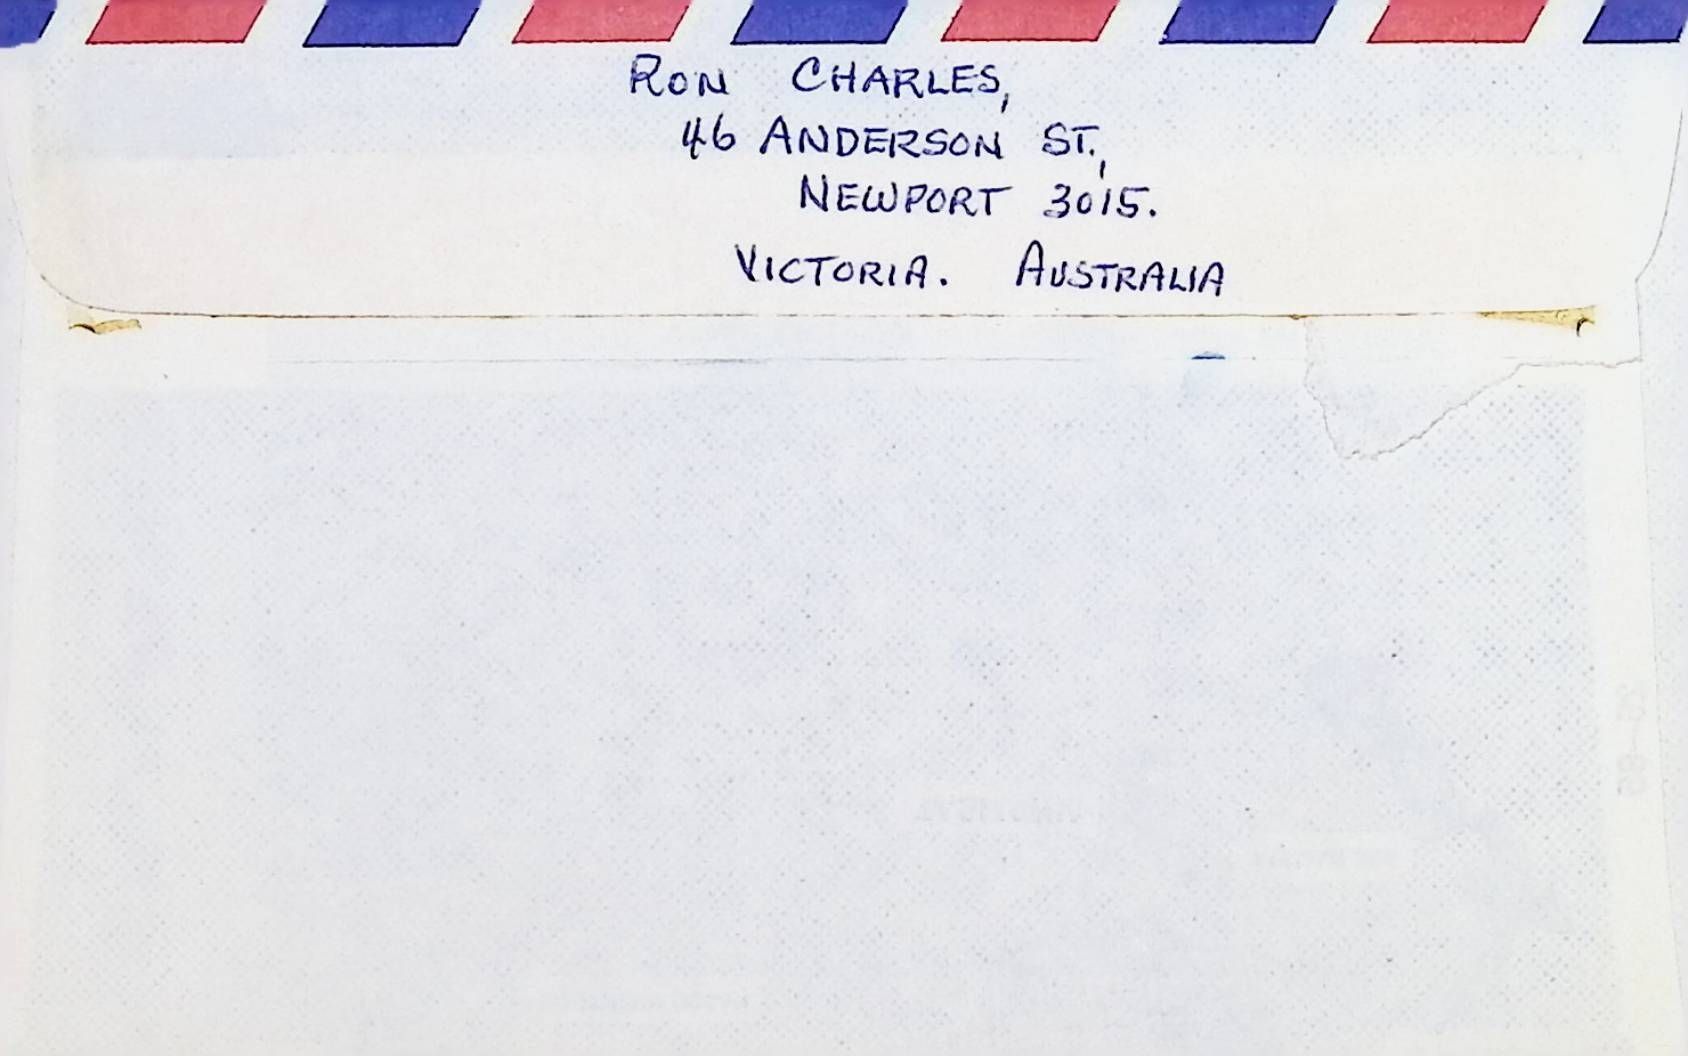 RON CHARLES,
46 ANDERSON ST.,
NEWPORT 3015.
VICTORIA. AUSTRALIA